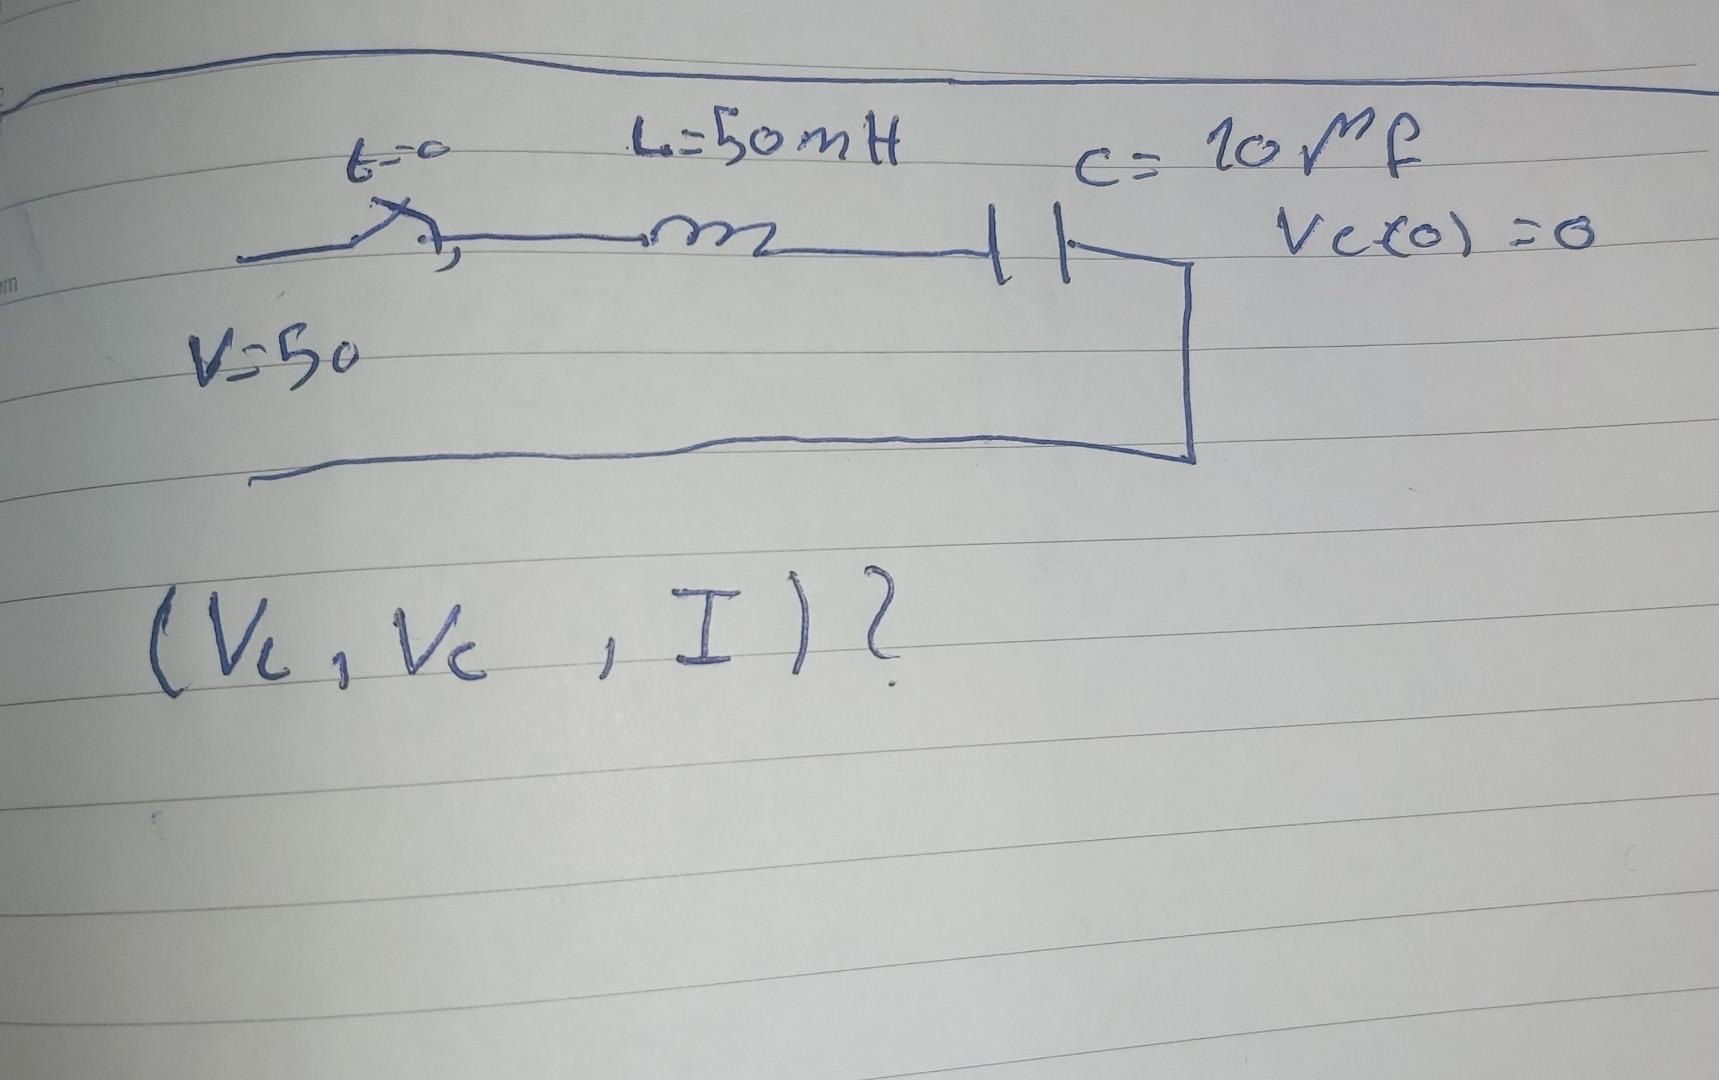 t=0 L=50mH C= 10 μf
Vc(0) =0
V=50
(VL, Vc, I)?